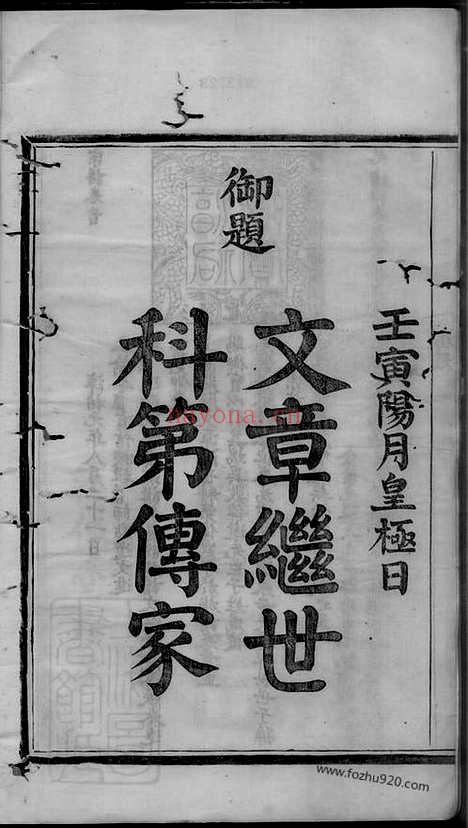 壬寅陽月皇極日
御題
文章繼世
科第傳家
nayona.cn
www.fozhu920.com